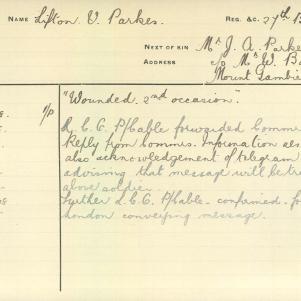 NAME Lifton V. Parkes. REG. &C. 27th B
NEXT OF KIN Mr J. A. Parke
ADDRESS c/o Mrs W. Ba
Mount Gambie
"Wounded. 2nd occasion."
P/Cable forwarded Comm
Reply from Comms. Information
also acknowledgement of telegram
advising that message will be tr
above soldier.
Further L.C.C. P/Cable - confirmed. fo
London conveying message.